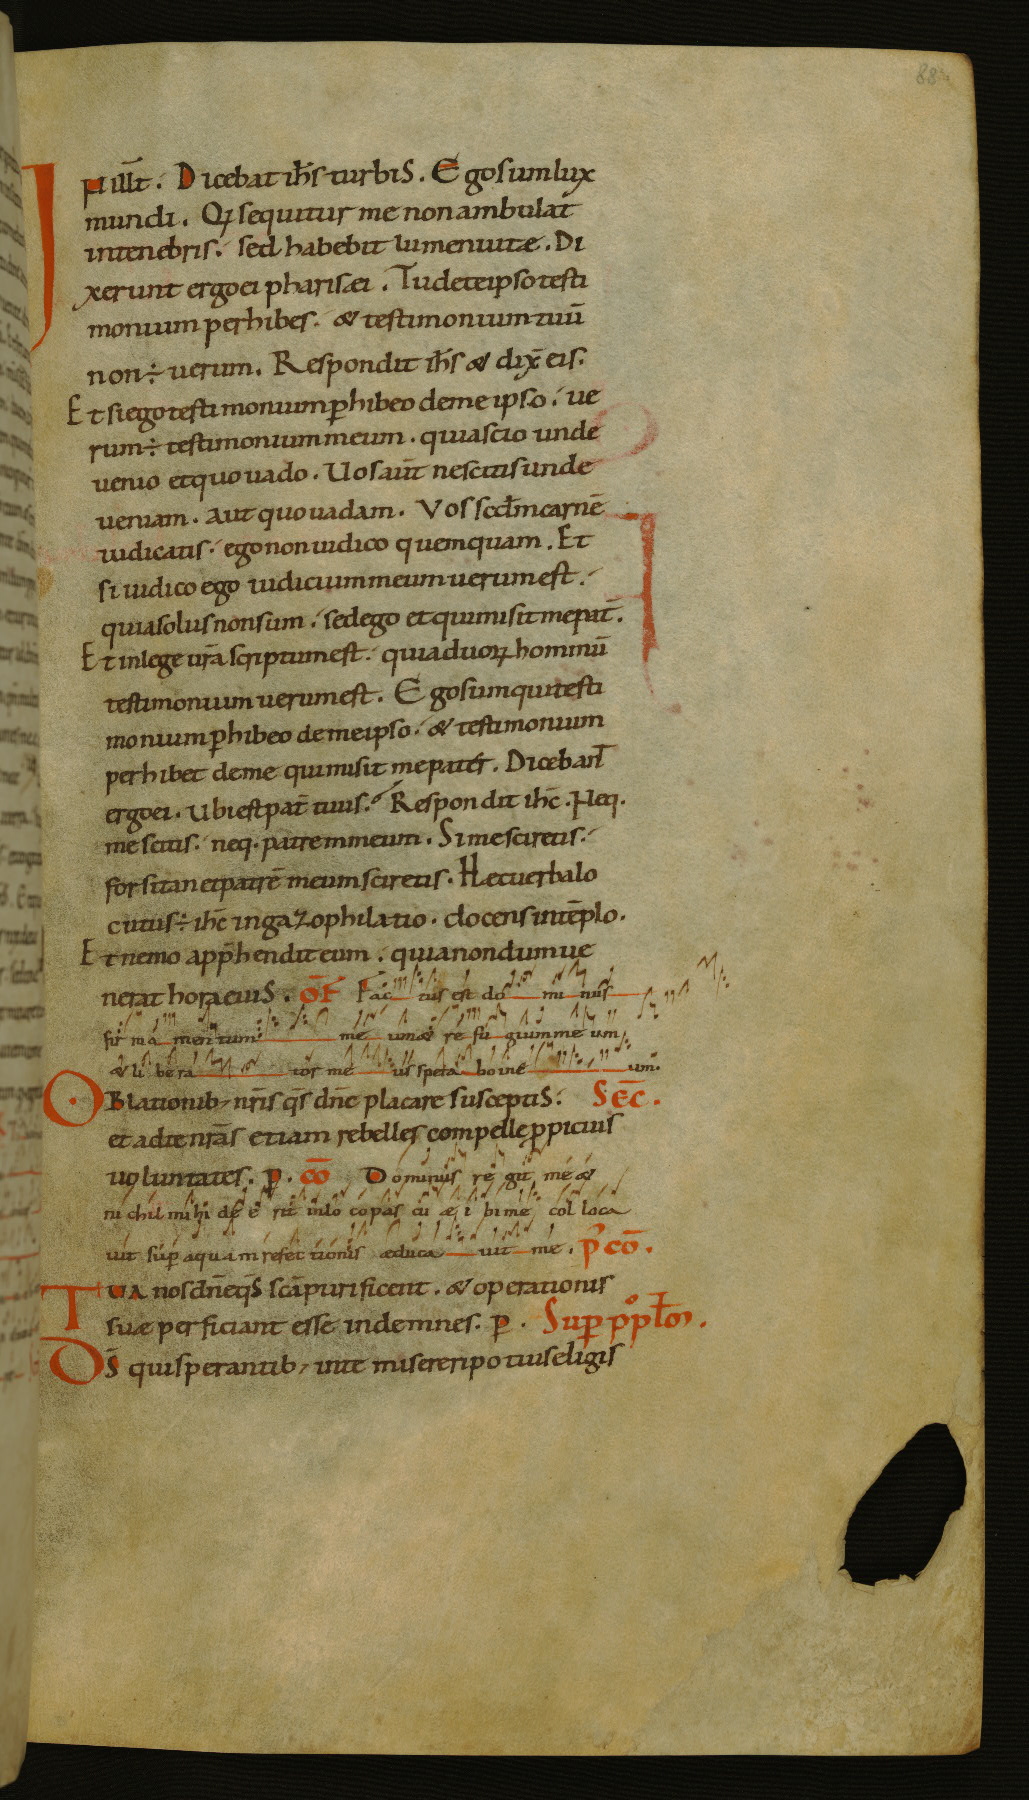 88
IN illt. Dicebat ihs turbis. Ego sum lux
mundi. Qı sequitur me non ambulat
in tenebris. sed habebit lumen uitæ. Di
xerunt ergo ei pharisæi. Tu de te ipso testi
monium perhibes. & testimonium tuū
non ÷ uerum. Respondit ihs & dix̄ eis.
Et si ego testimonium phibeo de me ipso. ue
rum ÷ testimonium meum. quia scio unde
uenio et quo uado. Uos aut̄ nescitis unde
ueniam. aut quo uadam. Vos scdm carnē
iudicatis. ego non iudico quemquam. Et
si iudico ego iudicium meum uerum est.
quia solus non sum. sed ego et qui misit me pat̄.
Et in lege ur̄a scriptum est. quia duoꝝ hominū
testimonium uerum est. Ego sum qui testi
monium phibeo de me ipso. & testimonium
perhibet de me qui misit me pater. Dicebant
ergo ei. Ubi est pat̄ tuus. Respondit ihc. Neq.
me scitis. neq. patrem meum. Si me sciretis.
forsitan et patrē meum sciretis. Hæc uerba lo
cutus ÷ ihc in gazophilatio. docens in tēplo.
Et nemo apphendit eum. quia nondum ue
nerat hora eius. OF Fac tus est do mi nus
fir ma men tum me um & re fu gium me um
& li be ra tor me us spera bo in e um.
Oblationib; nr̄is qs dn̄e placare susceptis. SEC.
et ad te nr̄as etiam rebelles compelle ppicius
uoluntates. p. co Dominus re git me &
ni chil mi hi de e rit in lo co pas cu æ i bi me col loca
uit sup aquam refec tionis educa uit me. P co.
Tua nos dn̄e qs sc̄a purificent. & operationis
suæ perficiant esse indemnes. p. Sup pplm.
Ds qui sperantib; in te misereri potius eligis